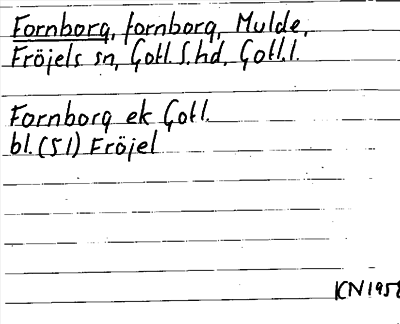 Fornborg, fornborg, Mulde,
Fröjels sn, Gotl. S. hd, Gotl. l.
Fornborg ek Gotl.
bl. (51) Fröjel
KN 1958